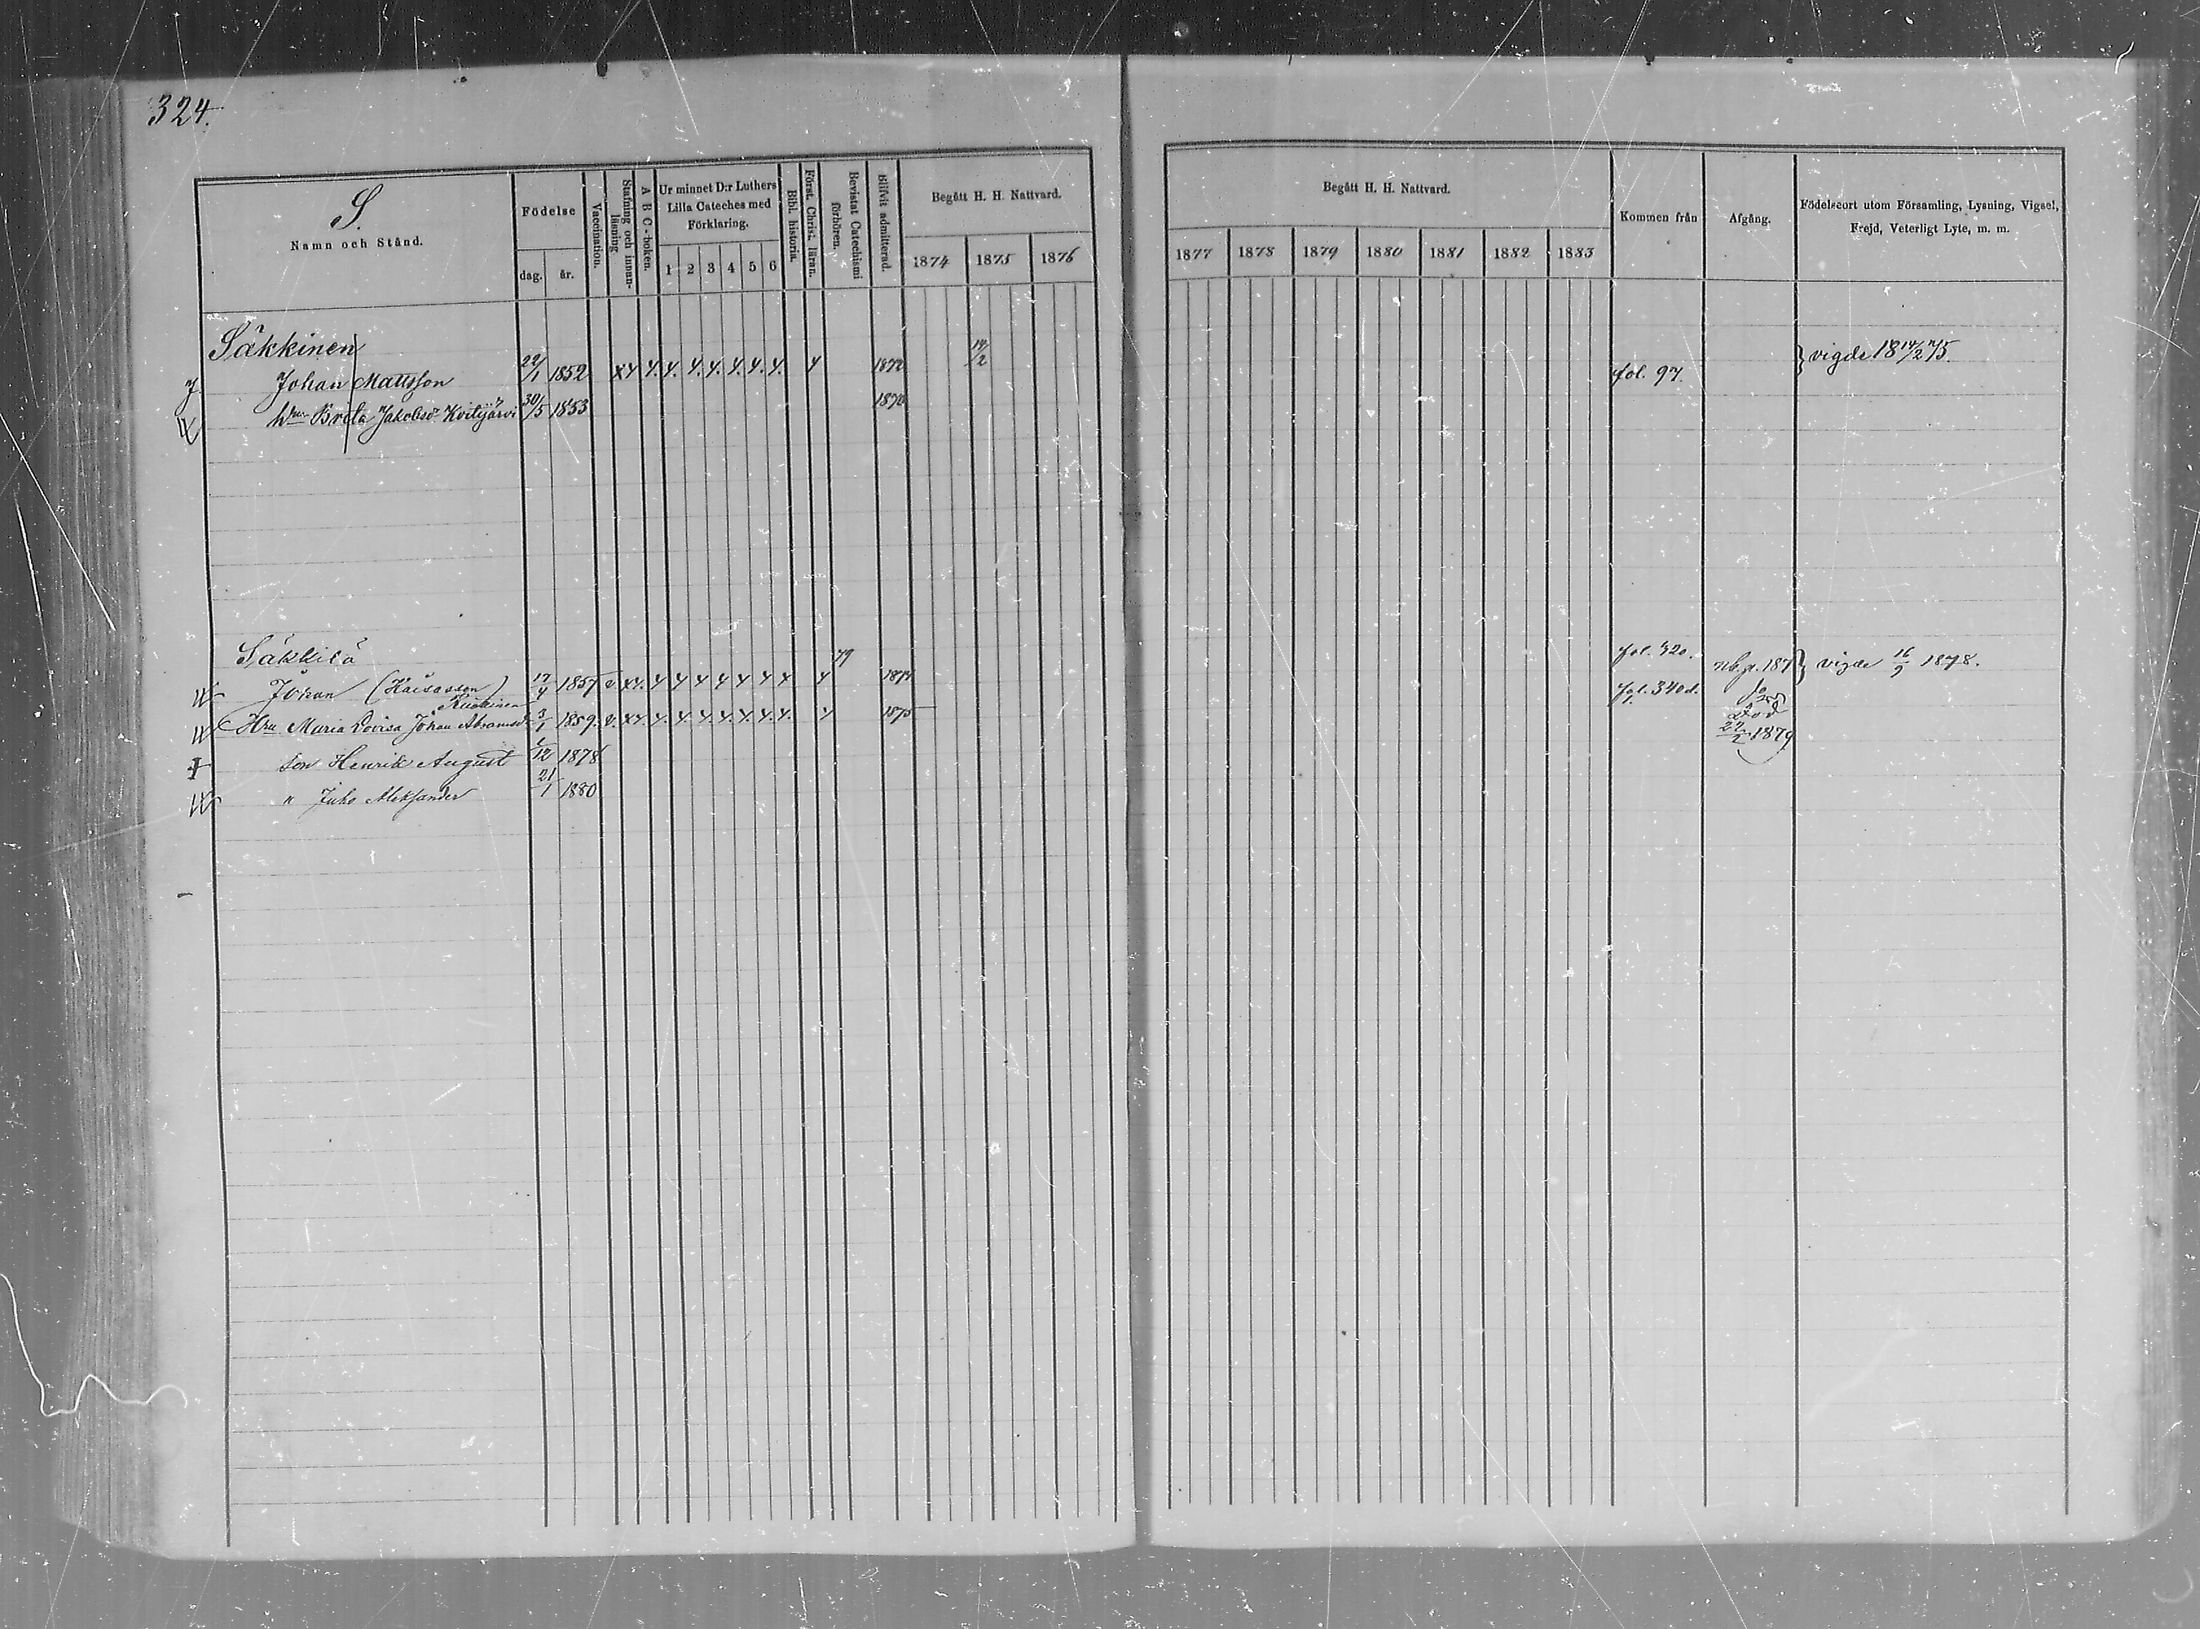 324.
S.
Namn och Stånd.
Födelse
dag.
år.
Vaccination.
Stafning och innan-
läsning
A B C-boken.
Ur minnet D:r Luthers
Lilla Cateches med
Förklaring.
1 2 3 4 5 6
Bibl. historia.
Först. Christ. läran.
Bevistat Catechismi
förhören.
Blifvit admitterad.
Begått H. H. Nattvard.
1874 1875 1876
Begått H. H. Nattvard.
1877 1878 1879 1880 1881 1882 1883
Kommen från
Afgång.
Födelseort utom Församling, Lysning, Vigsel,
Frejd, Veterligt Lyte, m. m.
Säkkinen
Johan Mattsson 22/1 1852 X4 4. 4. 4. 4. 4. 4. 4. 4 1872 14/2 fol. 97. } vigde 18 14/2 75.
Brita Jakobsdr 30/5 1853 1870
Säkkilä 79
Johan ( ) 17/4 1857 v. X4. 4 4 4 4 4 4 4 4 1874 fol. 320. } vigde 16/9 1878.
Hru Maria Lovisa Johan Abramsd 3/1 1859. v. X4 4. 4. 4. 4. 4. 4. 4. 4 1875 fol. 340 d.
son Henrik August /12 1878 Död 22/2 1879
" Juho Aleksander 21/1 1880